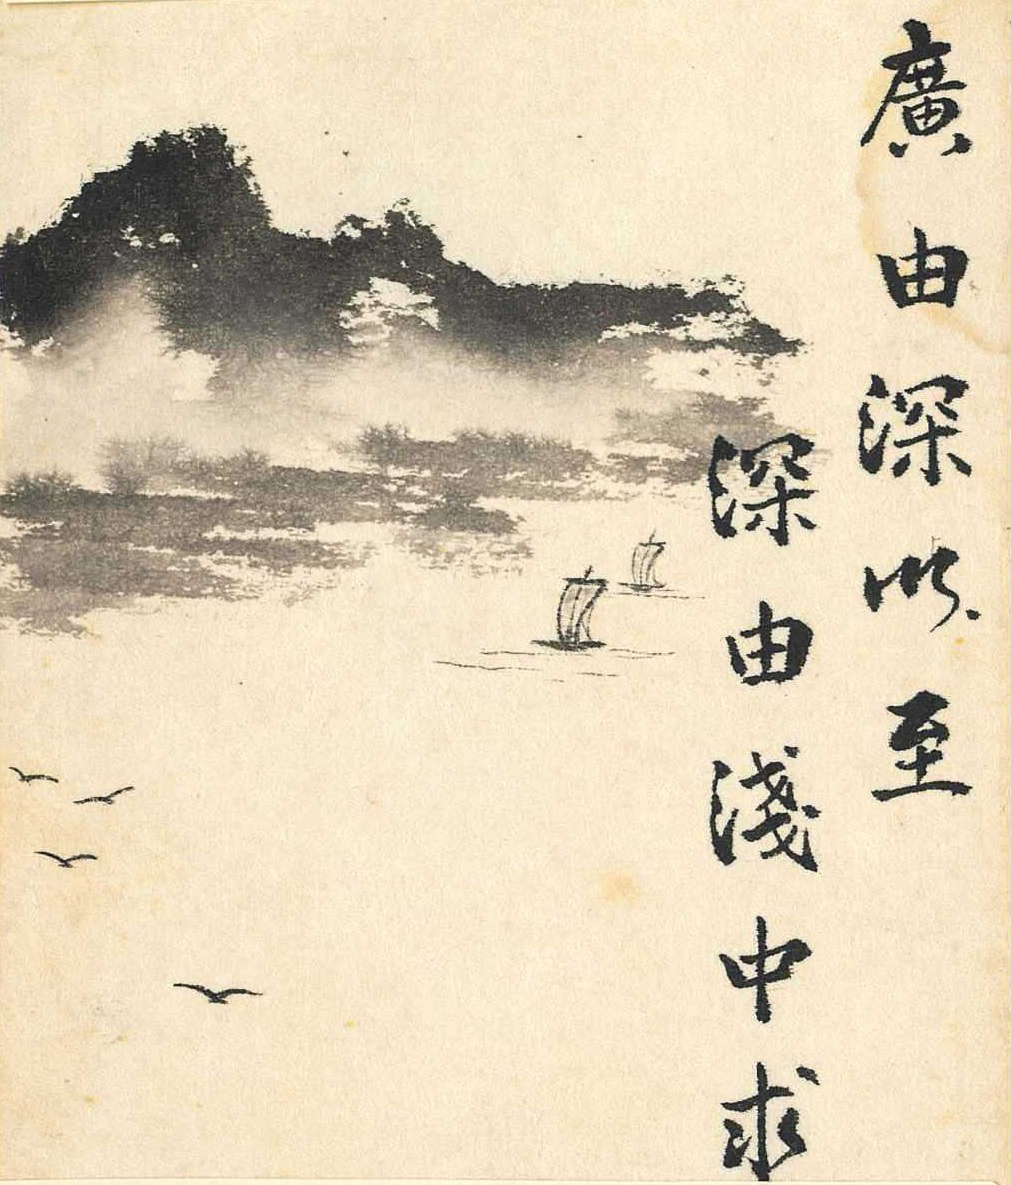 廣由深以至
深由淺中求